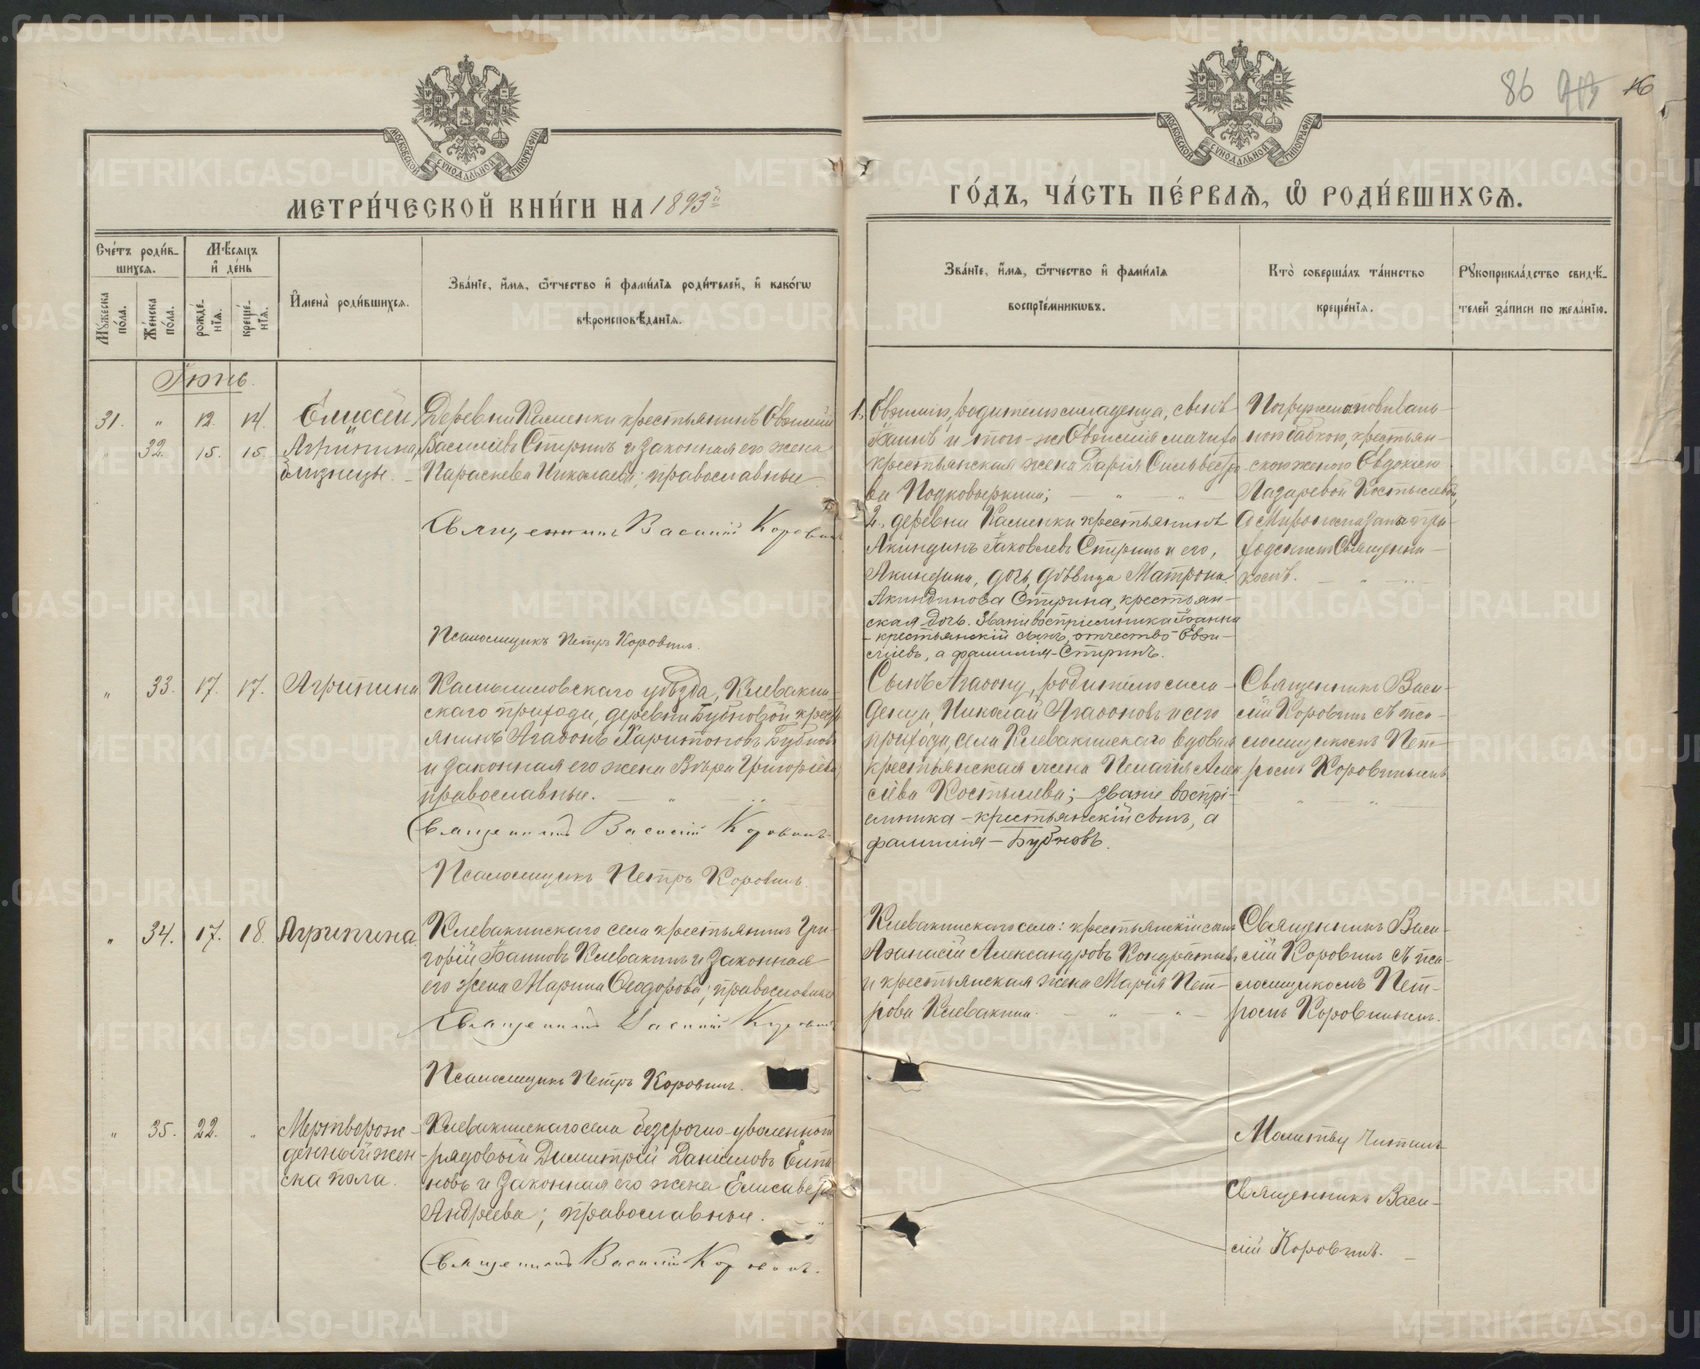 86
16
МЕТРИ́ЧЕСКОЙ КНИ́ГИ НА 1893й
ГО́ДЪ, ЧА́СТЬ ПЕ́РВАЯ, Ѡ҆ РОДИ́ВШИХСЯ.
Сче́тъ роди́в-
шихся.
Мѣ́сяцъ
и҆ де́нь
Мꙋ́жеска
по́ла.
Же́нска
по́ла.
рожде́-
нїѧ.
креще́-
нїѧ.
И҆мена̀ роди́вшихся.
Зва́нїе, и҆́мя, ѻ҆́тчество и҆ фами́лїя роди́телей, и҆ како́гѡ
вѣроисповѣ́данїя.
Зва́нїе, и҆́мя, ѻ҆́тчество и҆ фами́лїя
воспрїе́мникѡвъ.
Кто̀ соверша́лъ та́инство
креще́нїя.
Рꙋкоприкла́дство свидѣ́-
телей за́писи по жела́нїю.
Іюнь.
31. " 12. 14. Елиссей,
" 32. 15. 15. Агрипина,
близнецы.
Деревни Каменки крестьянинъ Евѳимій
Василіевъ Стиринъ и законная его жена
Параскева Николаева; православные
Священникъ Василій Коровинъ
Псаломщикъ Петръ Коровинъ.
1., Евѳимія, родителя младенца, сынъ
Іоаннъ и того-же Евѳимія мачиха
крестьянская жена Дарія Сильвестро
ва Подковыркина;
2. деревни Каменки крестьянинъ
Акиндинъ Іаковлевъ Стиринъ и его,
Акиндина, дочь, дѣвица Матрона
Акиндинова Стирина, крестьян-
ская дочь. Званіе воспріемника Іоанна
- крестьянскій сынъ, отчество - Евѳи-
міевъ, а фамилія - Стиринъ.
Погружена повиваль-
ною бабкою, крестьян-
скою женою Евдокіею
Лазаревой Костылевой,
а миропомазана при-
ходскимъ Священни-
комъ.
" 33. 17. 17. Агрипина
Камышловскаго уѣзда, Клевакин-
скаго прихода, деревни Бубновой кресть
янинъ Агаѳонъ Харитоновъ Бубновъ
и законная его жена Вѣра Григоріева
православные.
Священникъ Василій Коровинъ
Псаломщикъ Петръ Коровинъ.
Сынъ Агаѳону, родителю мла-
денца, Николай Агаѳоновъ и сего
прихода, села Клевакинскаго вдовая
крестьянская жена Пелагія Алек
сіева Костылева; - званіе воспрі-
емника - крестьянскій сынъ, а
фамилія - Бубновъ.
Священникъ Васи-
лій Коровинъ съ пса-
ломщикомъ Пет-
ромъ Коровинымъ
" 34. 17. 18. Агрипина
Клевакинскаго села крестьянинъ Гри
горій Іоанновъ Клевакинъ и законная
его жена Марина Ѳеодорова; православные
Священникъ Василій Коровинъ
Псаломщикъ Петръ Коровинъ.
Клевакинскаго села: крестьянскій сынъ
Аѳанасій Александровъ Кондратьевъ
и крестьянская жена Марія Пет-
рова Клевакина.
Священникъ Васи-
лій Коровинъ съ пса-
ломщикомъ Пет-
ромъ Коровинымъ.
" 35. 22. " Мертворож-
денный жен-
ска пола.
Клевакинскаго села безсрочно-уволенный
рядовый Димитрій Даниловъ
новъ и законная его жена Елисавета
Андреева; православные.
Священникъ Василій Коровинъ.
Молитву читалъ
Священникъ Васи-
лій Коровинъ.
METRIKI.GASO-URAL.RU